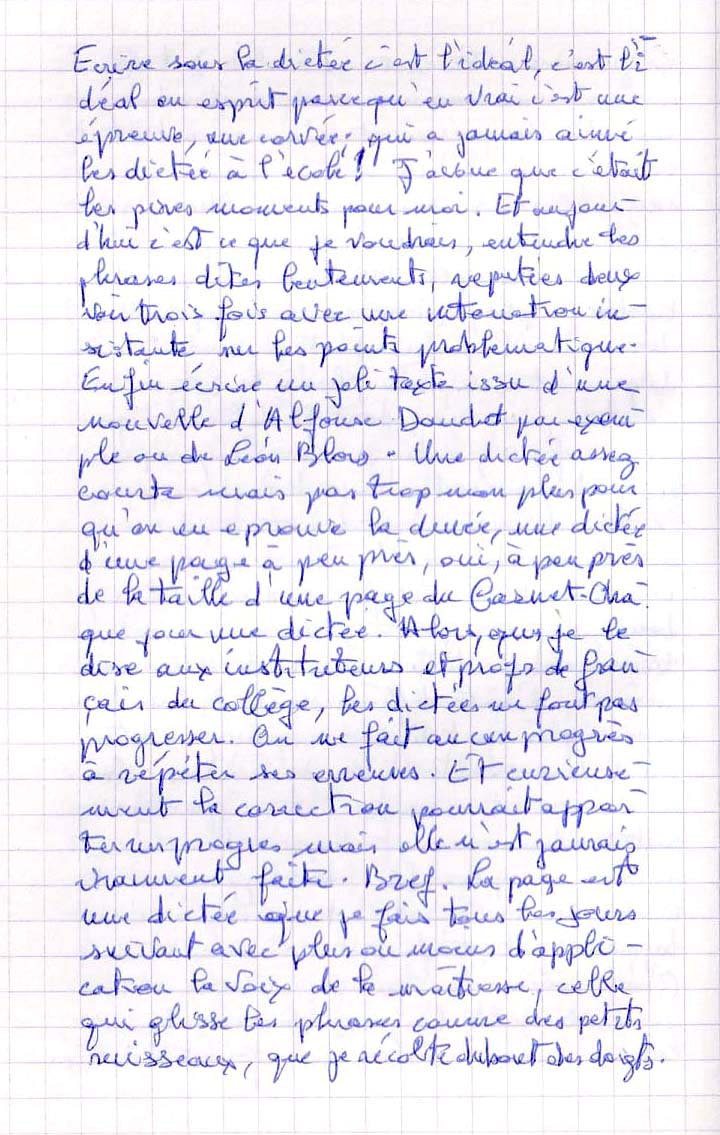 Ecrire sous la dictée c'est l'idéal, c'est l'i-
déal en esprit parcequ'en vrai c'est une
épreuve, une corvée, qui a jamais aimé
les dictée à l'école! J'avoue que c'était
les pires moments pour moi. Et aujour-
d'hui c'est ce que je voudrais, entendre les
phrases dites lentements, reputées deux
voir trois fois avec une intonation in-
sistante sur les points problématique.
Enfin écrire un joli texte issu d'une
nouvelle d'Alfonse Doudet par exem-
ple ou de Léon Bloy. Une dictée assez
courte mais pas trop non plus pour
qu'on en eprouve la durée, une dictée
d'une page à peu près, oui, à peu près
de la taille d'une page du Carnet-Cha-
que jour une dictée. Alors, que je le
dise aux instituteurs et profs de fran-
çais du collège, les dictées ne font pas
progresser. On ne fait aucun progrès
à répéter ses erreures. Et curieuse-
ment la correction pourrait appor-
ter un progres mais elle n'est jamais
vraiment faite. Bref. La page est
une dictée que je fais tous les jours
suivant avec plus ou moins d'appli-
cation la voix de la maîtresse, celle
qui glisse les phrases comme des petits
ruisseaux, que je récolte du bout des doigts.